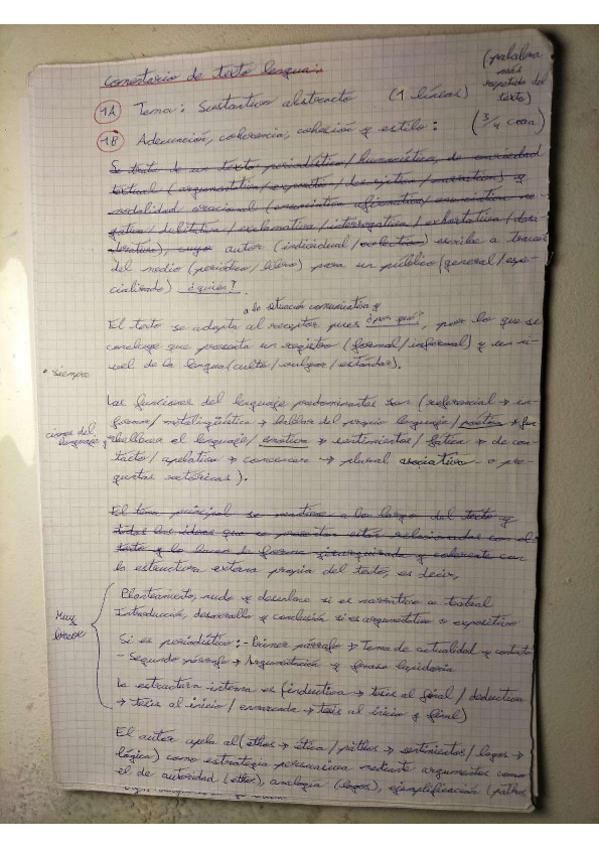 Comentario de texto lengua:
1A Tema: Sustantivo abstracto (1 líneas) (palabra más repetida del texto)
1B Adecuación, coherencia, cohesión y estilo: (3/4 cara)
Se trata de un texto periodístico/humanístico, de variedad
textual (argumentativa/expositiva/descriptiva/narrativa) y
modalidad oracional (enunciativa afirmativa/enunciativa ne-
gativa/dubitativa/exclamativa/interrogativa/exhortativa/desi-
derativa), cuyo autor (individual/colectivo) escribe a través
del medio (periódico/libro) para un público (general/espe-
cializado) ¿quién?
a la situación comunicativa y
El texto se adapta al receptor pues ¿por qué?, por lo que se
concluye que presenta un registro (formal/informal) y un ni-
vel de la lengua (culto/vulgar/estándar).
• siempre
Las funciones del lenguaje predominantes son (referencial → in-
forma/metalingüística → hablar del propio lenguaje/poética →
embellecer el lenguaje/emotiva → sentimientos/fática → de con-
tacto/apelativa → convencer → plural asociativo o pre-
guntas retóricas).
El tema principal se mantiene a lo largo del texto y
todas las ideas que se presentan están relacionadas con el
texto y lo hacen de forma jerarquizada y coherente con
la estructura externa propia del texto, es decir,
Muy breve
Planteamiento, nudo y desenlace si es narrativo o teatral
Introducción, desarrollo y conclusión si es argumentativo o expositivo
Si es periodístico: - Primer párrafo → Tema de actualidad y contexto
- Segundo párrafo → Argumentación y frase lapidaria
La estructura interna es (inductiva → tesis al final/deductiva
→ tesis al inicio/encuadrada → tesis al inicio y final)
El autor apela al (ethos → ética/páthos → sentimientos/logos →
lógica) como estrategia persuasiva mediante argumentos como
el de autoridad (ethos), analogía (logos), ejemplificación (pathos,